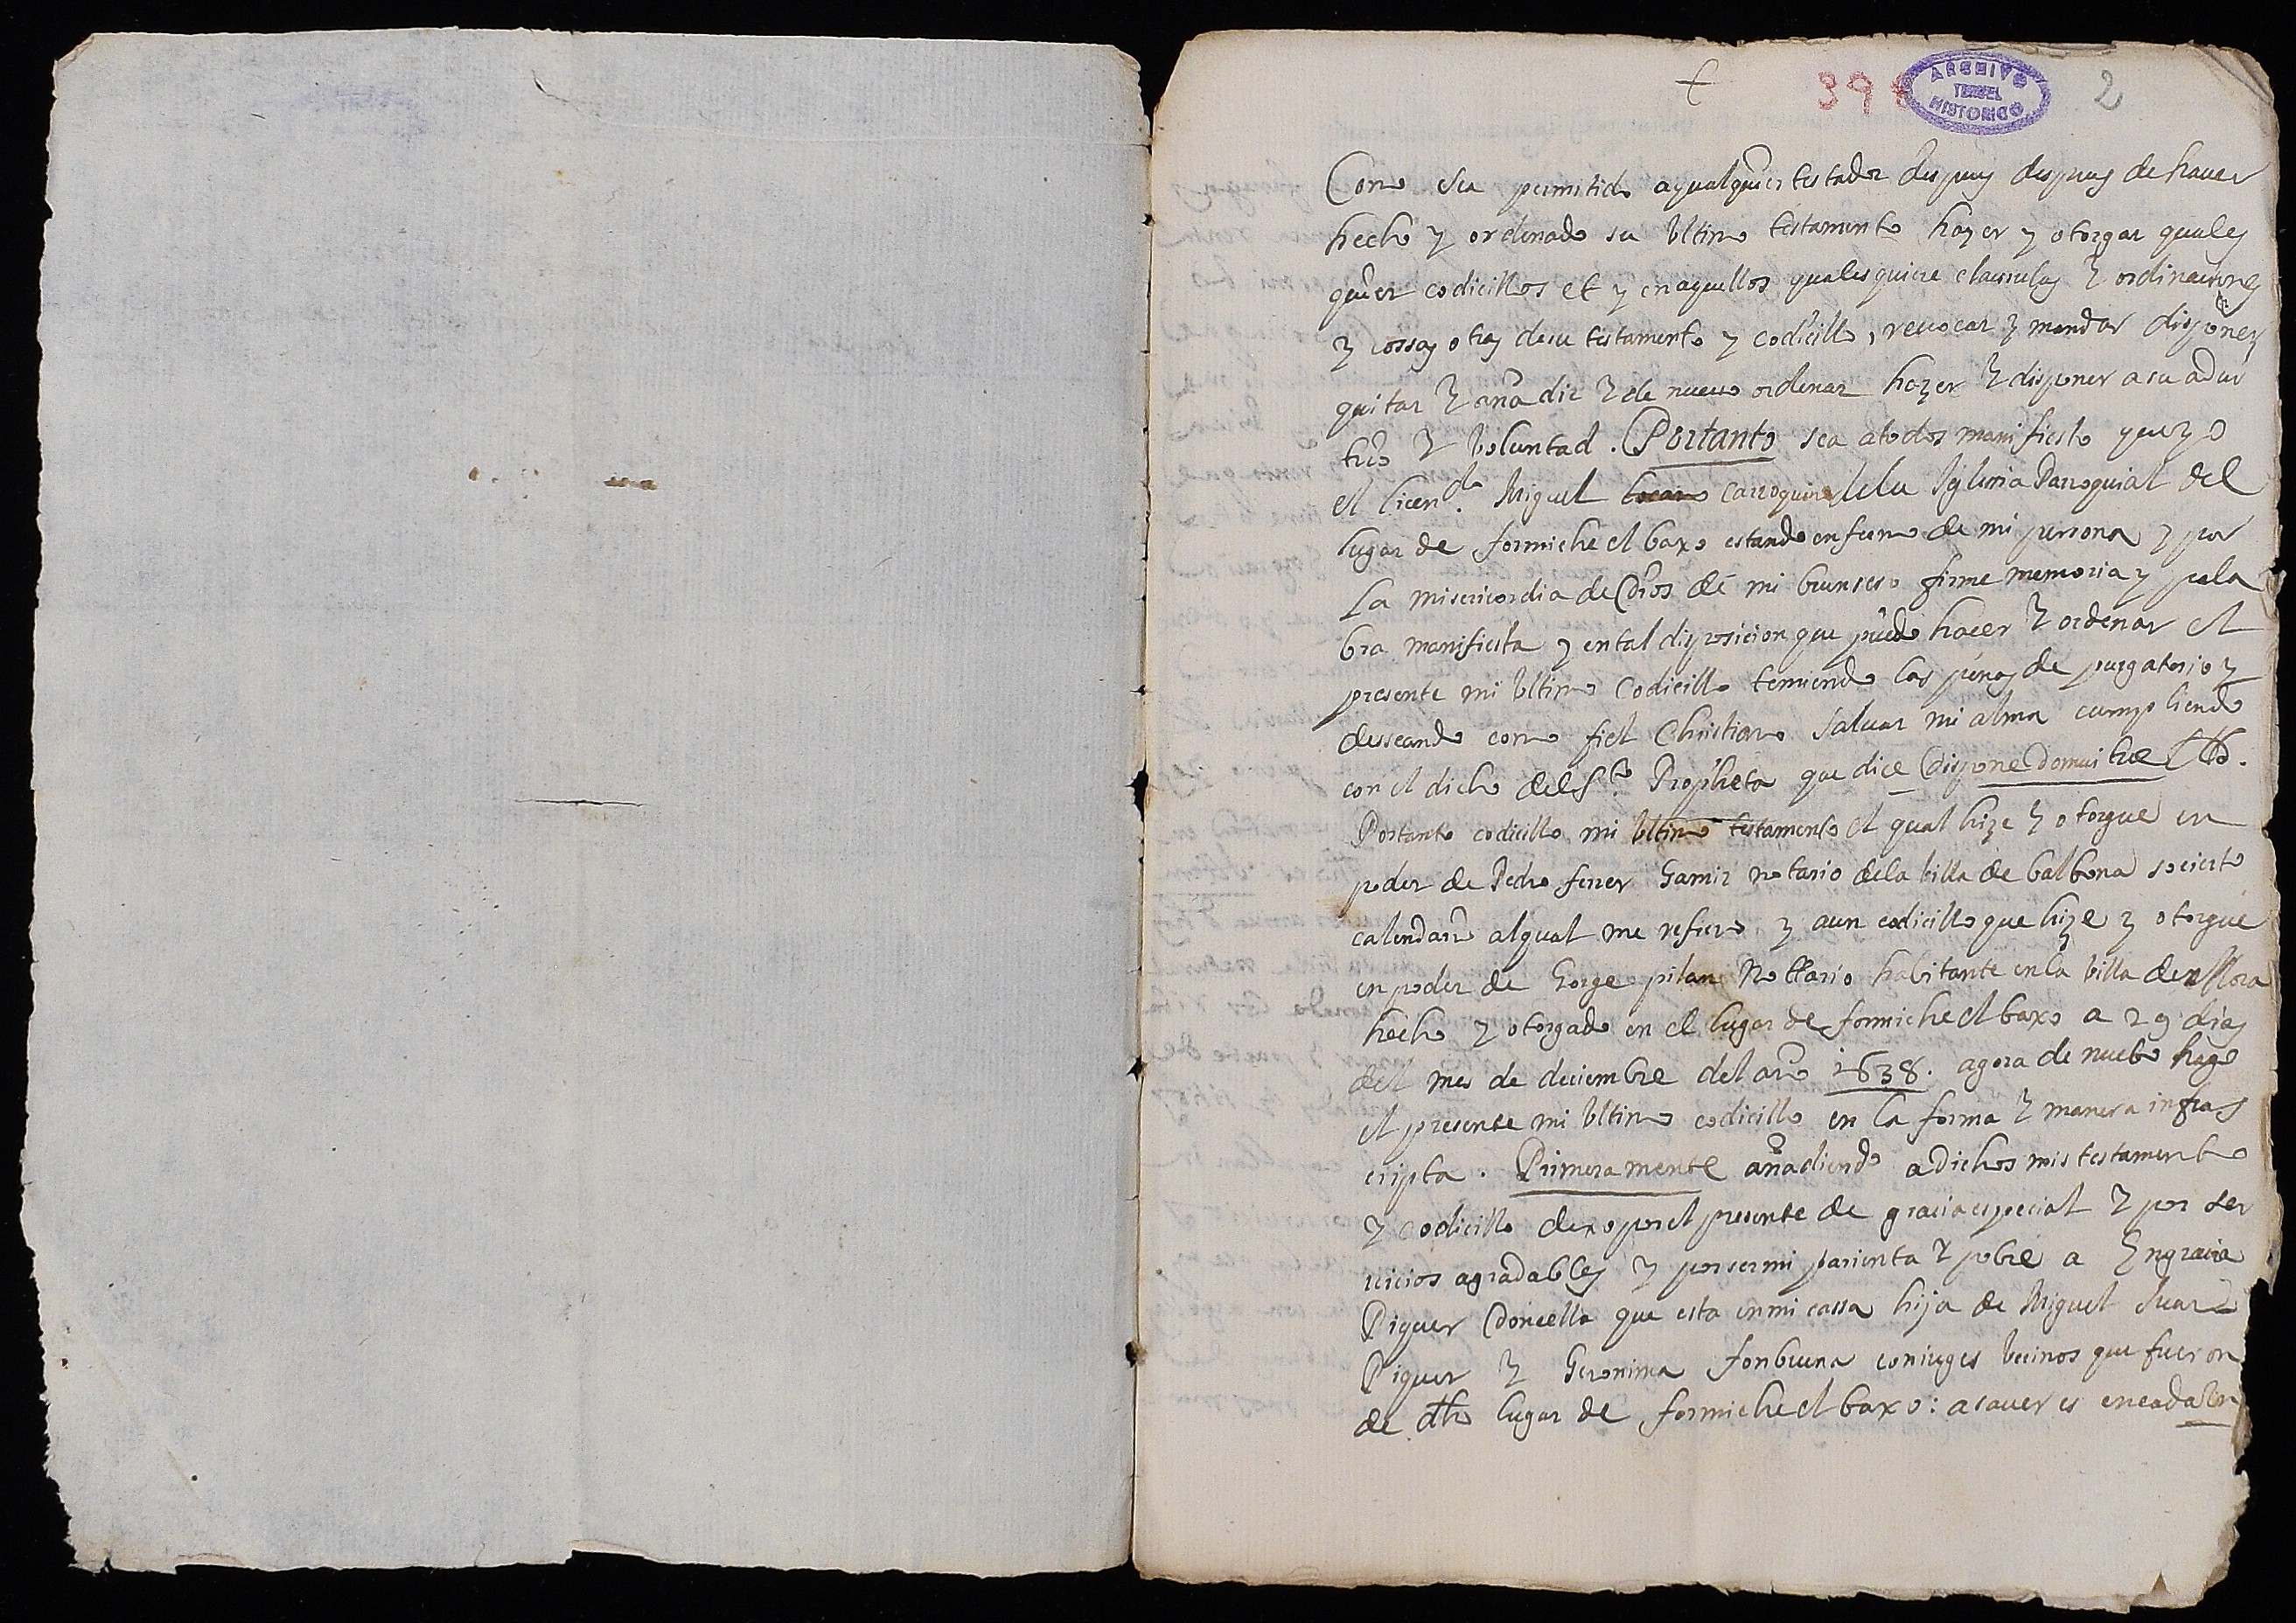 †
39
ARCHIVO
TERUEL
HISTORICO
2
Como sea permitido a qualquier testador despues despues de hauer
hecho y ordenado su ultimo testamento hazer y otorgar quales
quier codicillos et y en aquellos qualesquiere clausulas y ordinaciones
y cossas otras de su testamento y codicillo, reuocar y mandar disponer
quitar y añadir y de nueuo ordenar hazer y disponer a su adui
trio y boluntad. Portanto sea a todos manifiesto que yo
el licendo. Miguel Carroquino de la Iglesia Parroquial del
lugar de formiche el baxo estando enfermo de mi persona y por
la misericordia de Dios de mi buen seso firme memoria y pala
bra manifiesta y en tal disposicion que puedo hacer y ordenar el
presente mi ultimo codicillo temiendo las penas de purgatorio y
desseando como fiel Christiano saluar mi alma cumpliendo
con el dicho del Sto. Propheta que dice Dispone Domui tue
Portanto codicillo mi ultimo testamento el qual hize y otorgue en
poder de Pedro ferrer Gamir notario de la billa de balbona so cierto
calendario al qual me refiero y a un codicillo que hize y otorgue
en poder de Gorge pilan Nottario habitante en la billa de Mora
hecho y otorgado en el lugar de formiche el baxo a 29 dias
del mes de deciembre del año 1638. agora de nuebo hago
el presente mi ultimo codicillo en la forma y manera infras
cripta. Primeramente añadiendo a dichos mis testamento
y codicillo dexo por el presente de gracia especial y por ser
uicios agradables y por ser mi parienta y pobre a Engracia
Piquer Doncella que esta en mi cassa hija de Miguel Juan
Piquer y Geronima fonbuena coniuges becinos que fueron
de dho lugar de formiche el baxo: a sauer es en cada un